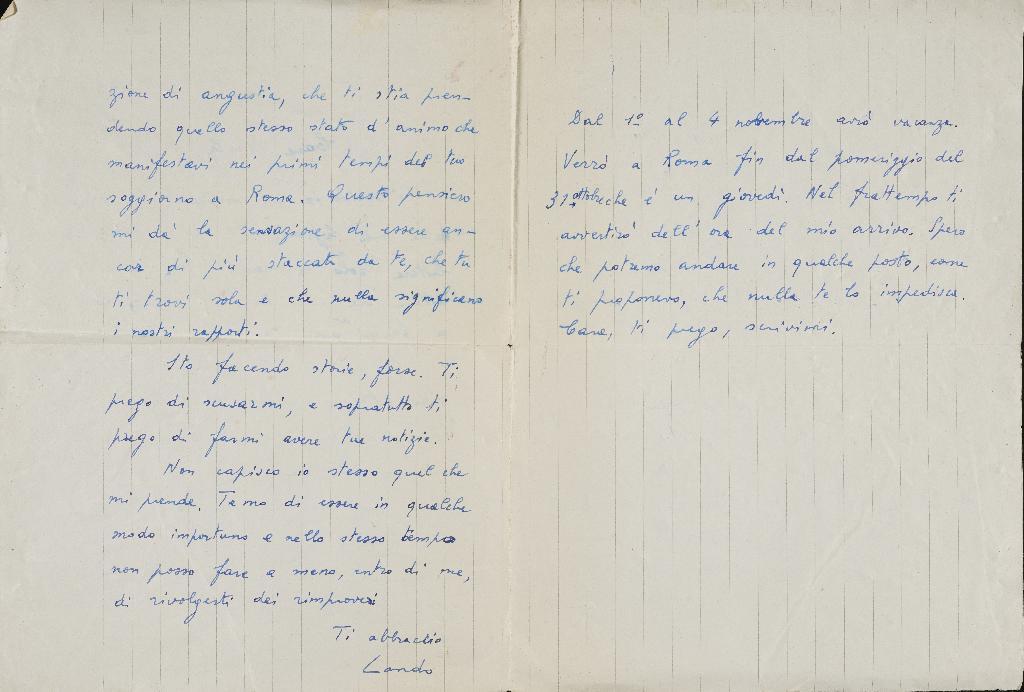 zione di angustia, che ti stia pren-
dendo quello stesso stato d'animo che
manifestavi nei primi tempi del tuo
soggiorno a Roma. Questo pensiero
mi dà la sensazione di essere an-
cor di più staccato da te, che tu
ti trovi sola e che nulla significano
i nostri rapporti.
Sto facendo storie, forse. Ti
prego di scusarmi, e sopratutto ti
prego di farmi avere tue notizie.
Non capisco io stesso quel che
mi prende. Temo di essere in qualche
modo importuno e nello stesso tempo
non posso fare a meno, entro di me,
di rivolgerti dei rimproveri
Ti abbraccio
Lando
Dal 1º al 4 novembre avrò vacanza.
Verrò a Roma fin dal pomeriggio del
31 ottobre che è un giovedì. Nel frattempo ti
avvertirò dell'ora del mio arrivo. Spero
che potremo andare in qualche posto, come
ti proponevo, che nulla te lo impedisca.
Cara, ti prego, scrivimi.